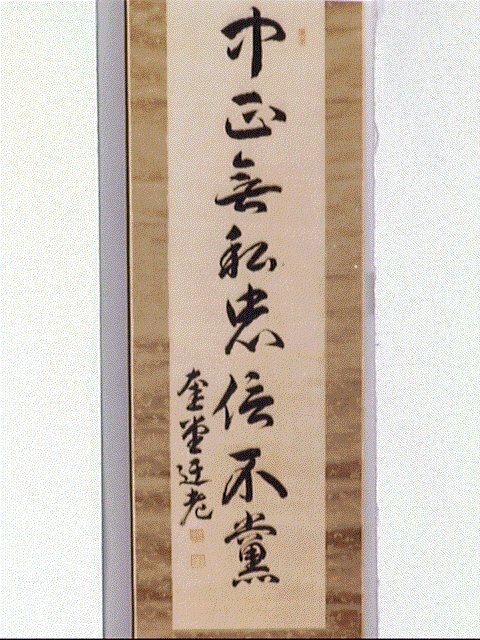 中正無私忠信不黨
奎堂迂老